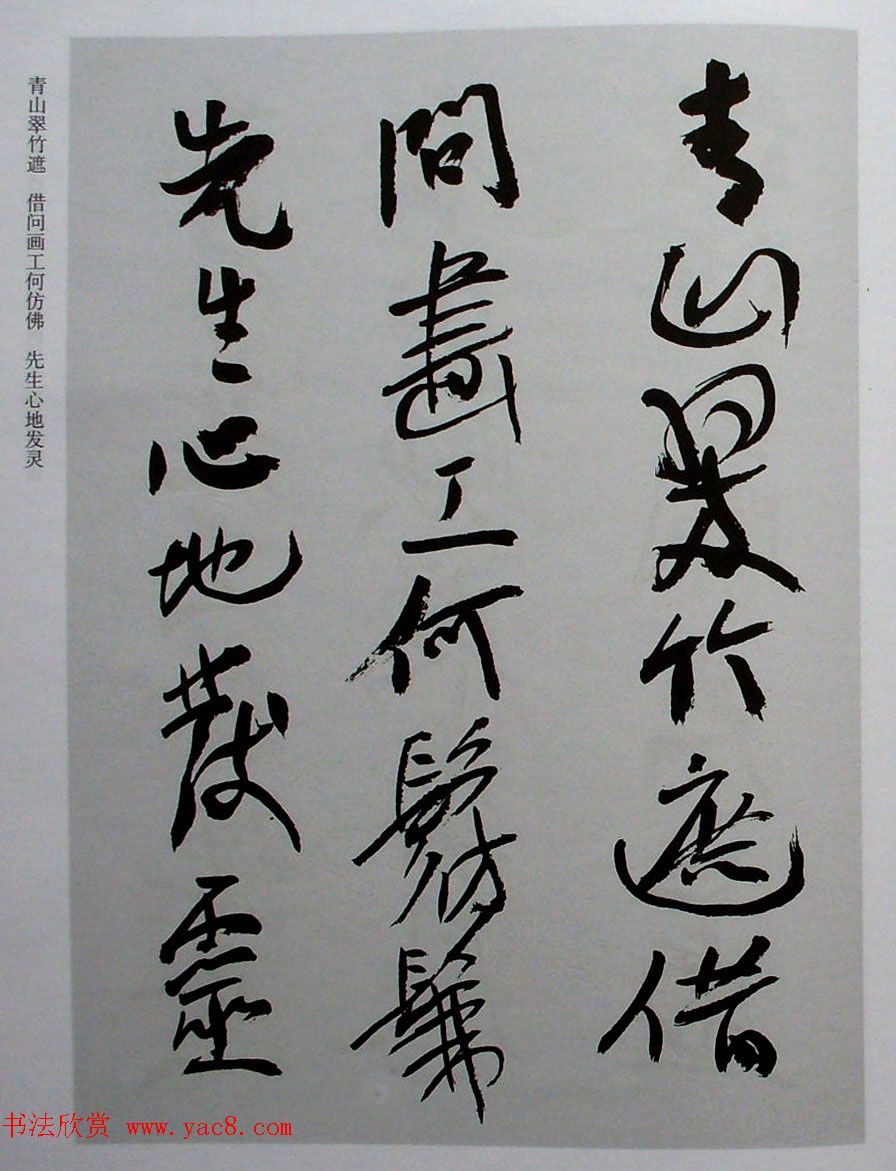 青山翠竹遮借
問畫工何髣髴
先生心地發靈
青山翠竹遮 借问画工何仿佛 先生心地发灵
书法欣赏 www.yac8.com